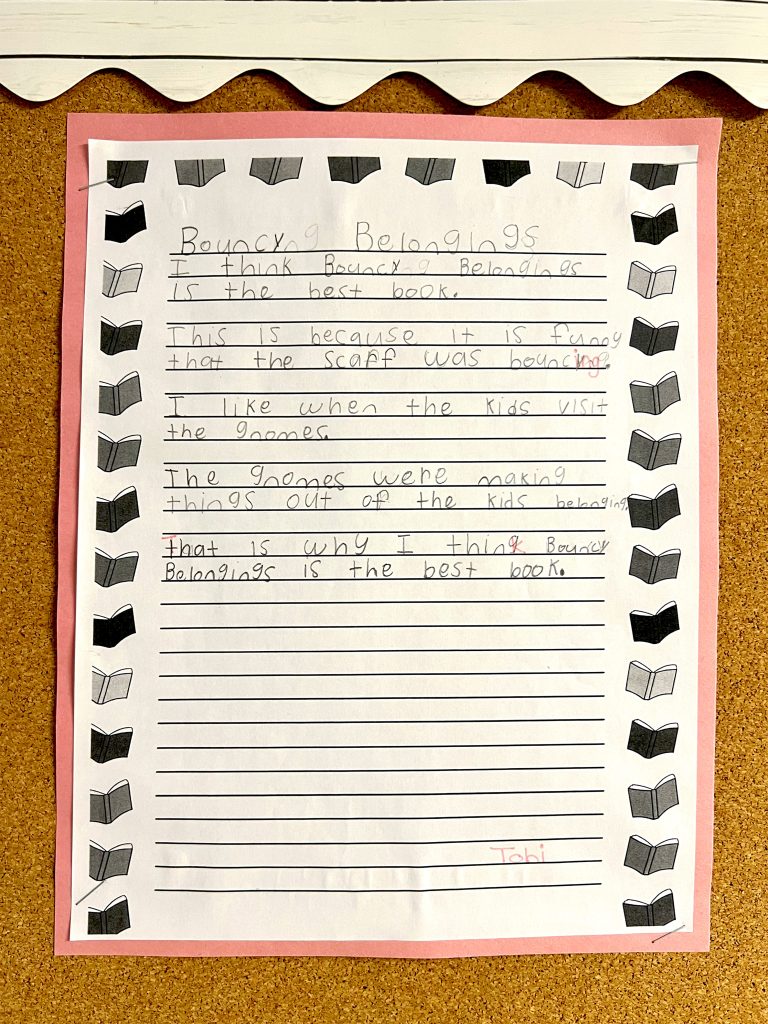 Bouncy Belongings
I think Bouncy Belongings
is the best book.
This is because it is funny
that the scarf was bouncing.
I like when the kids visit
the gnomes.
The gnomes were making
things out of the kids belongings
That is why I think Bouncy
Belongings is the best book.
Tobi